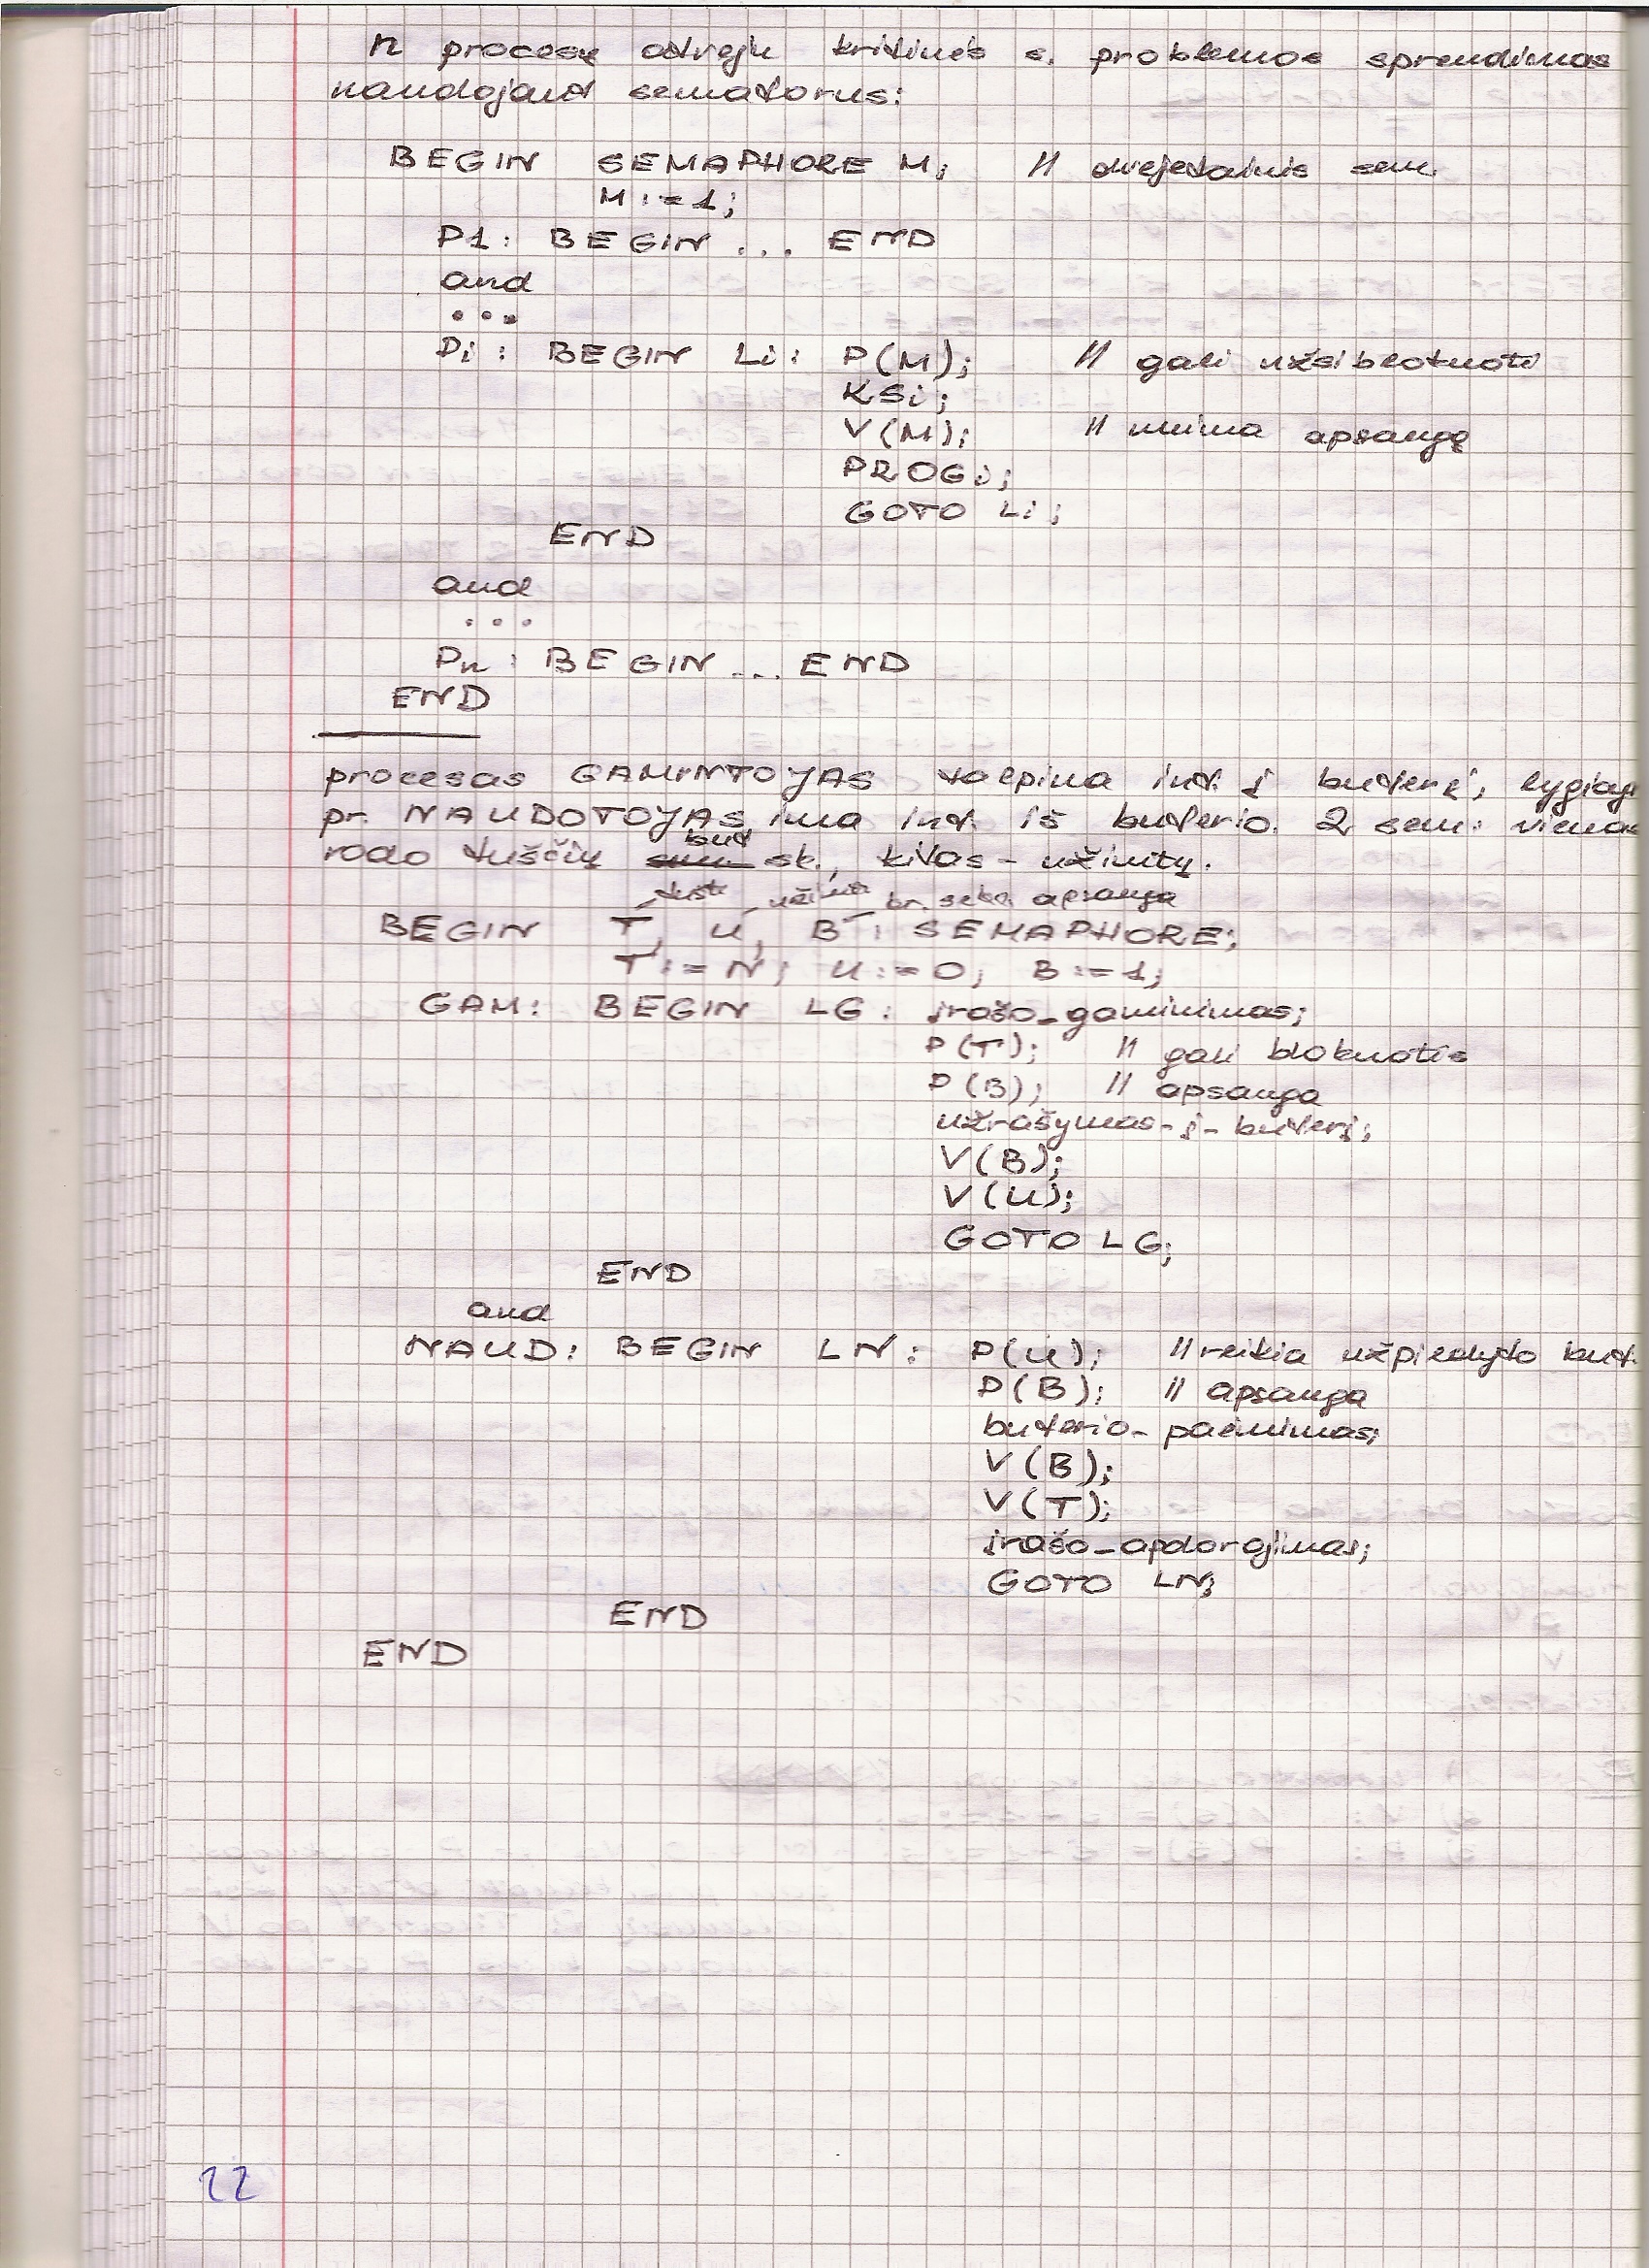 n procesų atveju kritinės s. problemos sprendimas
naudojant semaforus:
BEGIN SEMAPHORE M; // dvejetainis sem.
M := 1;
P1: BEGIN ... END
and
...
Pi: BEGIN Li: P(M); // gali užsiblokuoti
KSi;
V(M); // nuima apsaugą
PROGi;
GOTO Li;
END
and
...
Pn: BEGIN ... END
END
procesas GAMINTOJAS talpina inf. į buferį, lygiagr
pr. NAUDOTOJAS ima inf. iš buferio. 2 sem: vienas
buf
rodo tuščių sk., kitas - užimtų.
tušti užimti kr. sekc. apsauga
BEGIN T, U, B: SEMAPHORE;
T := N; U := 0; B := 1;
GAM: BEGIN LG: įrašo_gaminimas;
P(T); // gali blokuotis
P(B); // apsauga
užrašymas-į-buferį;
V(B);
V(U);
GOTO LG;
END
and
NAUD: BEGIN LN: P(U); // reikia užpildyto buf.
P(B); // apsauga
buferio-paėmimas;
V(B);
V(T);
įrašo_apdorojimas;
GOTO LN;
END
END
22